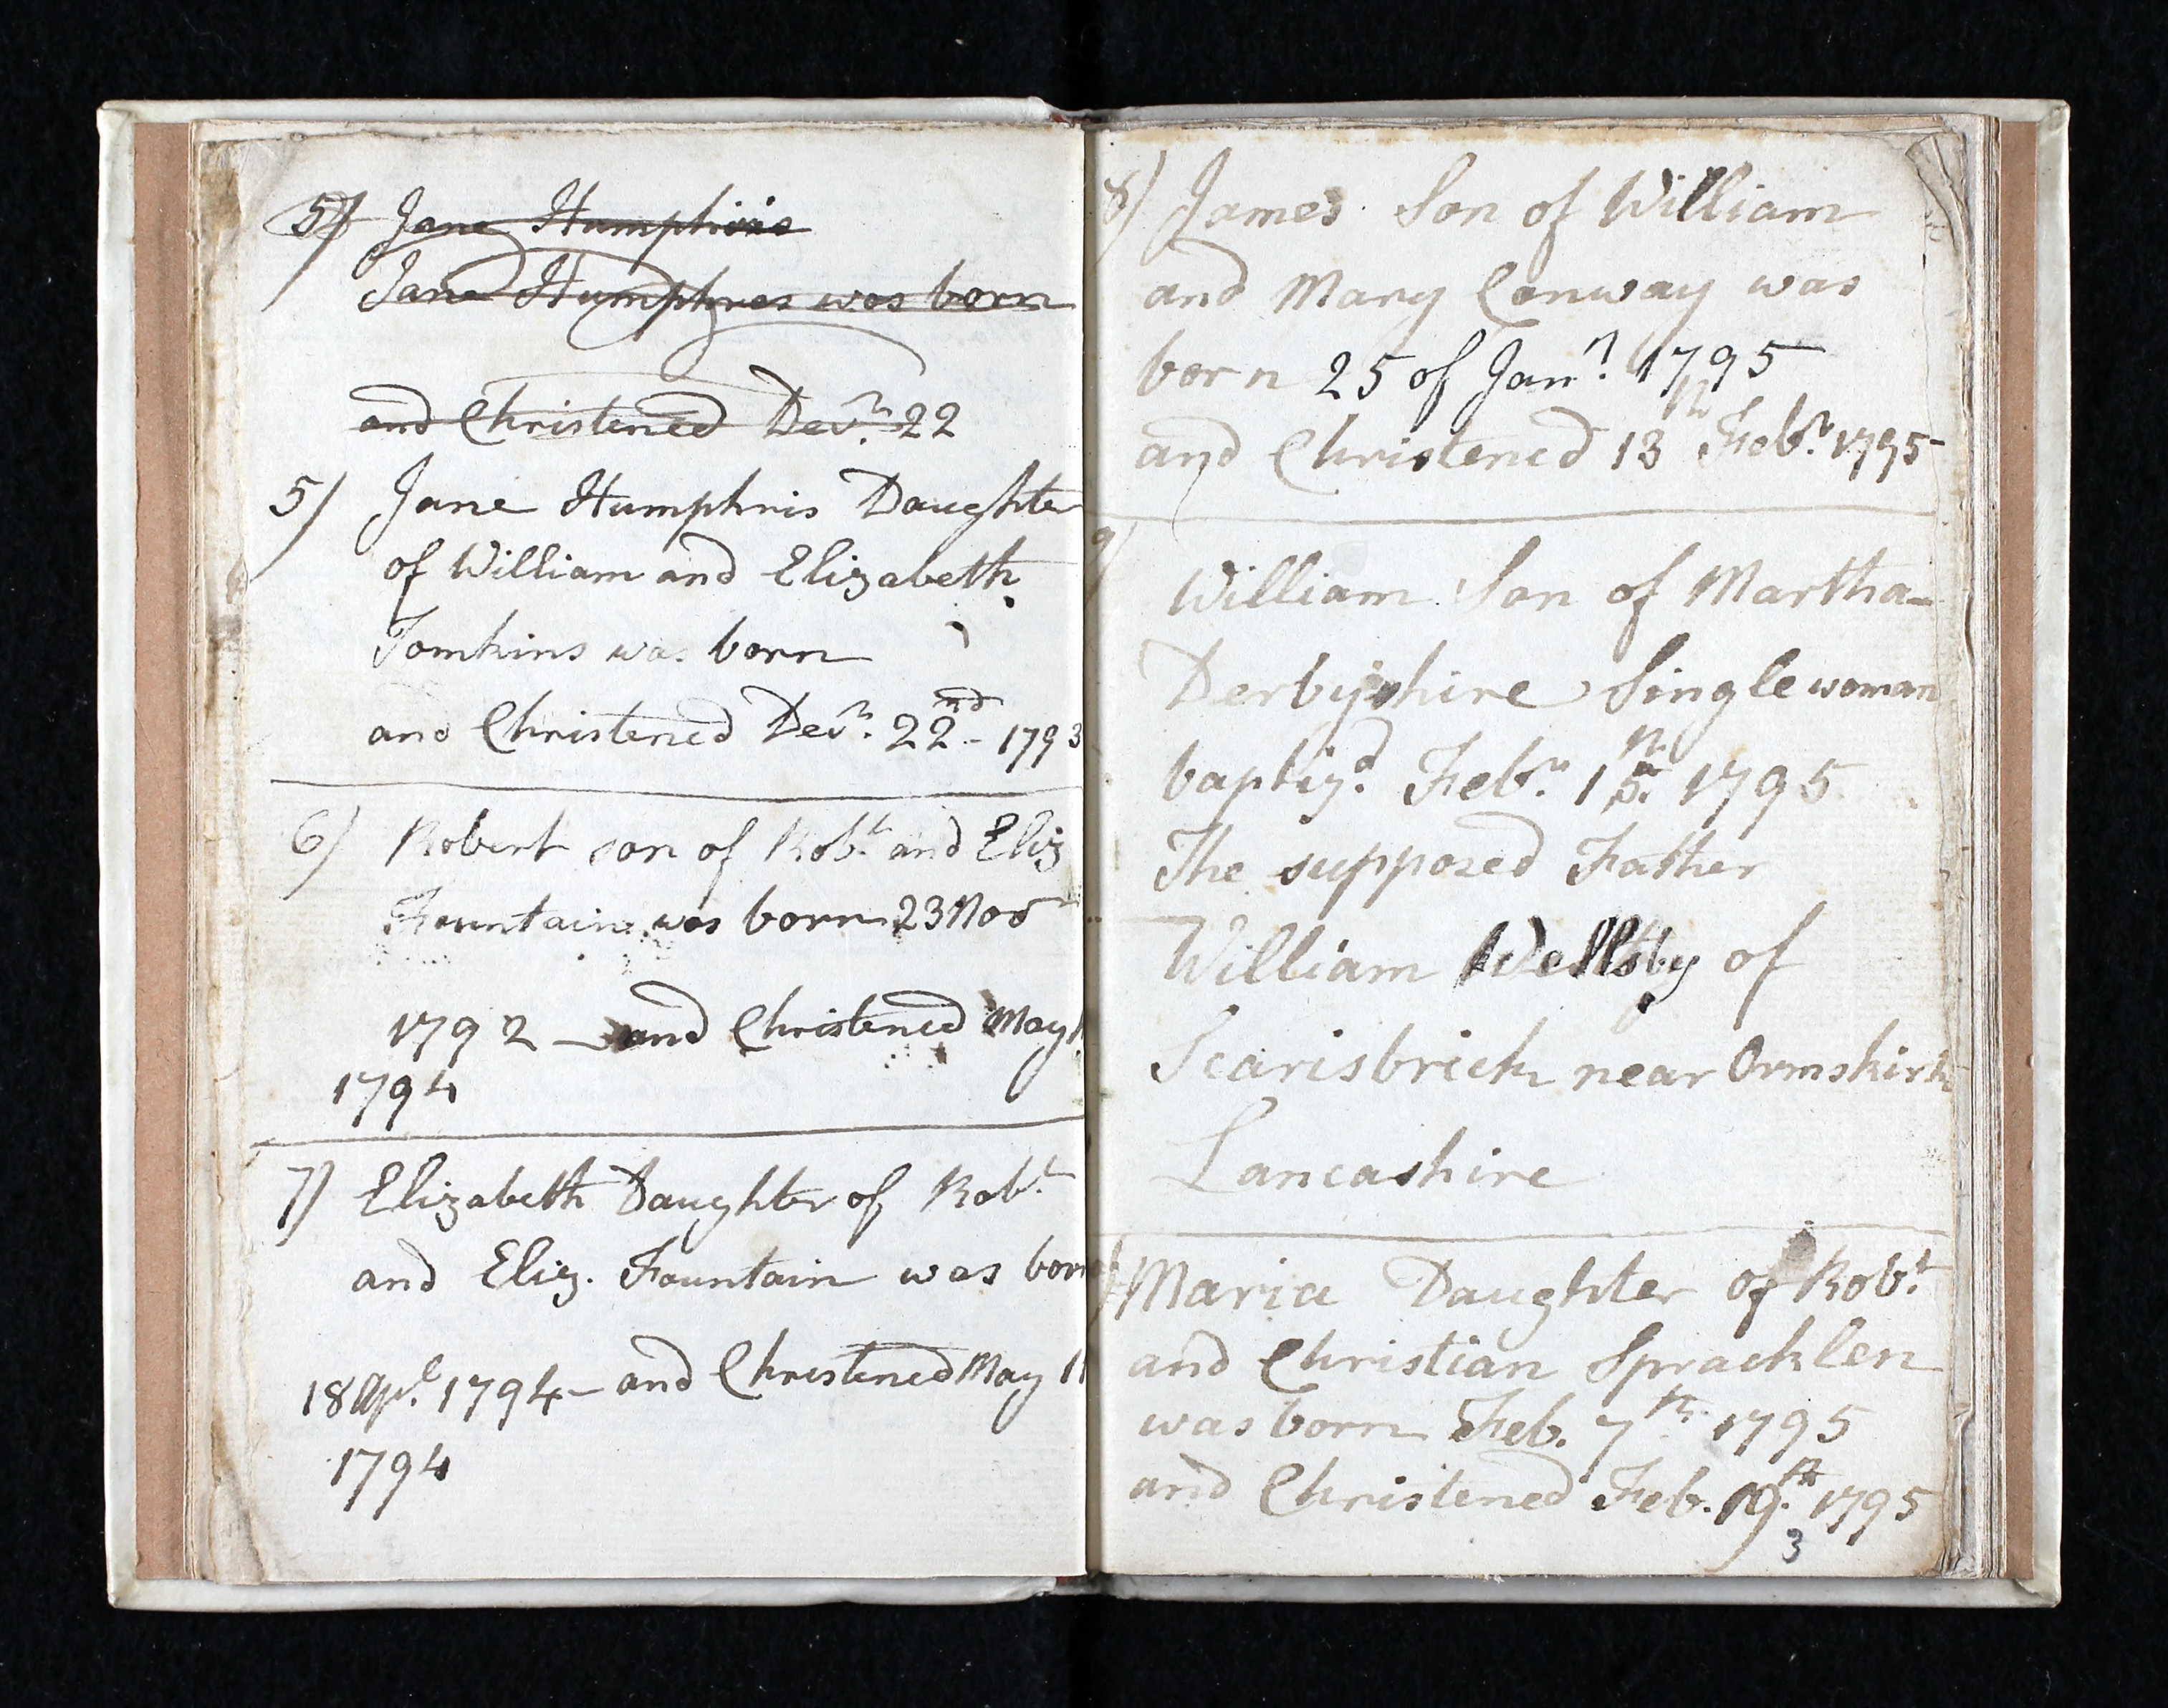 5) Jane Humphris
Jane Humphres was born
and Christened Decr. 22
5) Jane Humphris Daughter
of William and Elizabeth
Tomkins was born
and Christened Decr. 22nd - 1793
6) Robert son of Robt. and Eliz
Fountain was born 23 Nov
1792 — and Christened May
1794
7) Elizabeth Daughter of Robt.
and Eliz. Fountain was born
18 Apl. 1794 - and Christened May 11
1794
8) James Son of William
and Mary Conway was
born 25 of Jany. 1795
and Christened 13th Febr. 1795
9) William Son of Martha
Derbyshire Single woman
baptizd. Febr. 15th 1795
The supposed Father
William Wellsby of
Scarisbrick near Ormskirk
Lancashire
Maria Daughter of Robt.
and Christian Spracklen
was born Feb. 7th 1795
and Christened Feb. 19th 1795
3